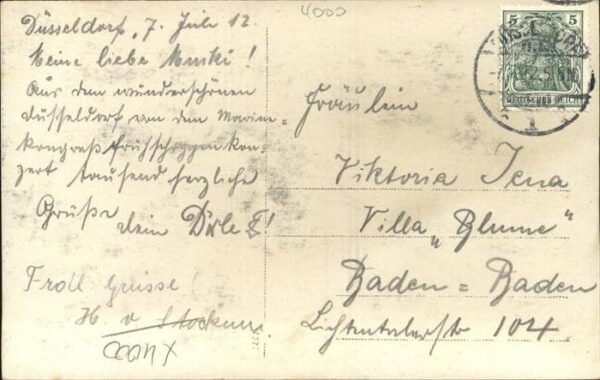 4000
Düsseldorf, 7. Juli 12.
Meine liebe Muski!
Aus dem wunderschönen
Düsseldorf von dem Marine-
kongreß frühschoppenkon-
zert tausend herzliche
Grüße
Dein
Frdl Grüsse!
H v. Stockum
Fräulein
Viktoria Jena
Villa „Blume"
Baden=Baden
Lichtentalerstr 104.
5 5
DEUTSCHES REICH